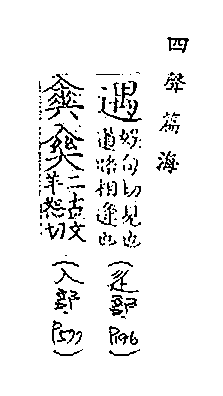 四聲篇海
遇 娛句切見也道路相逢也（辵部 P196）
二古文羊恕切（入部 P577）